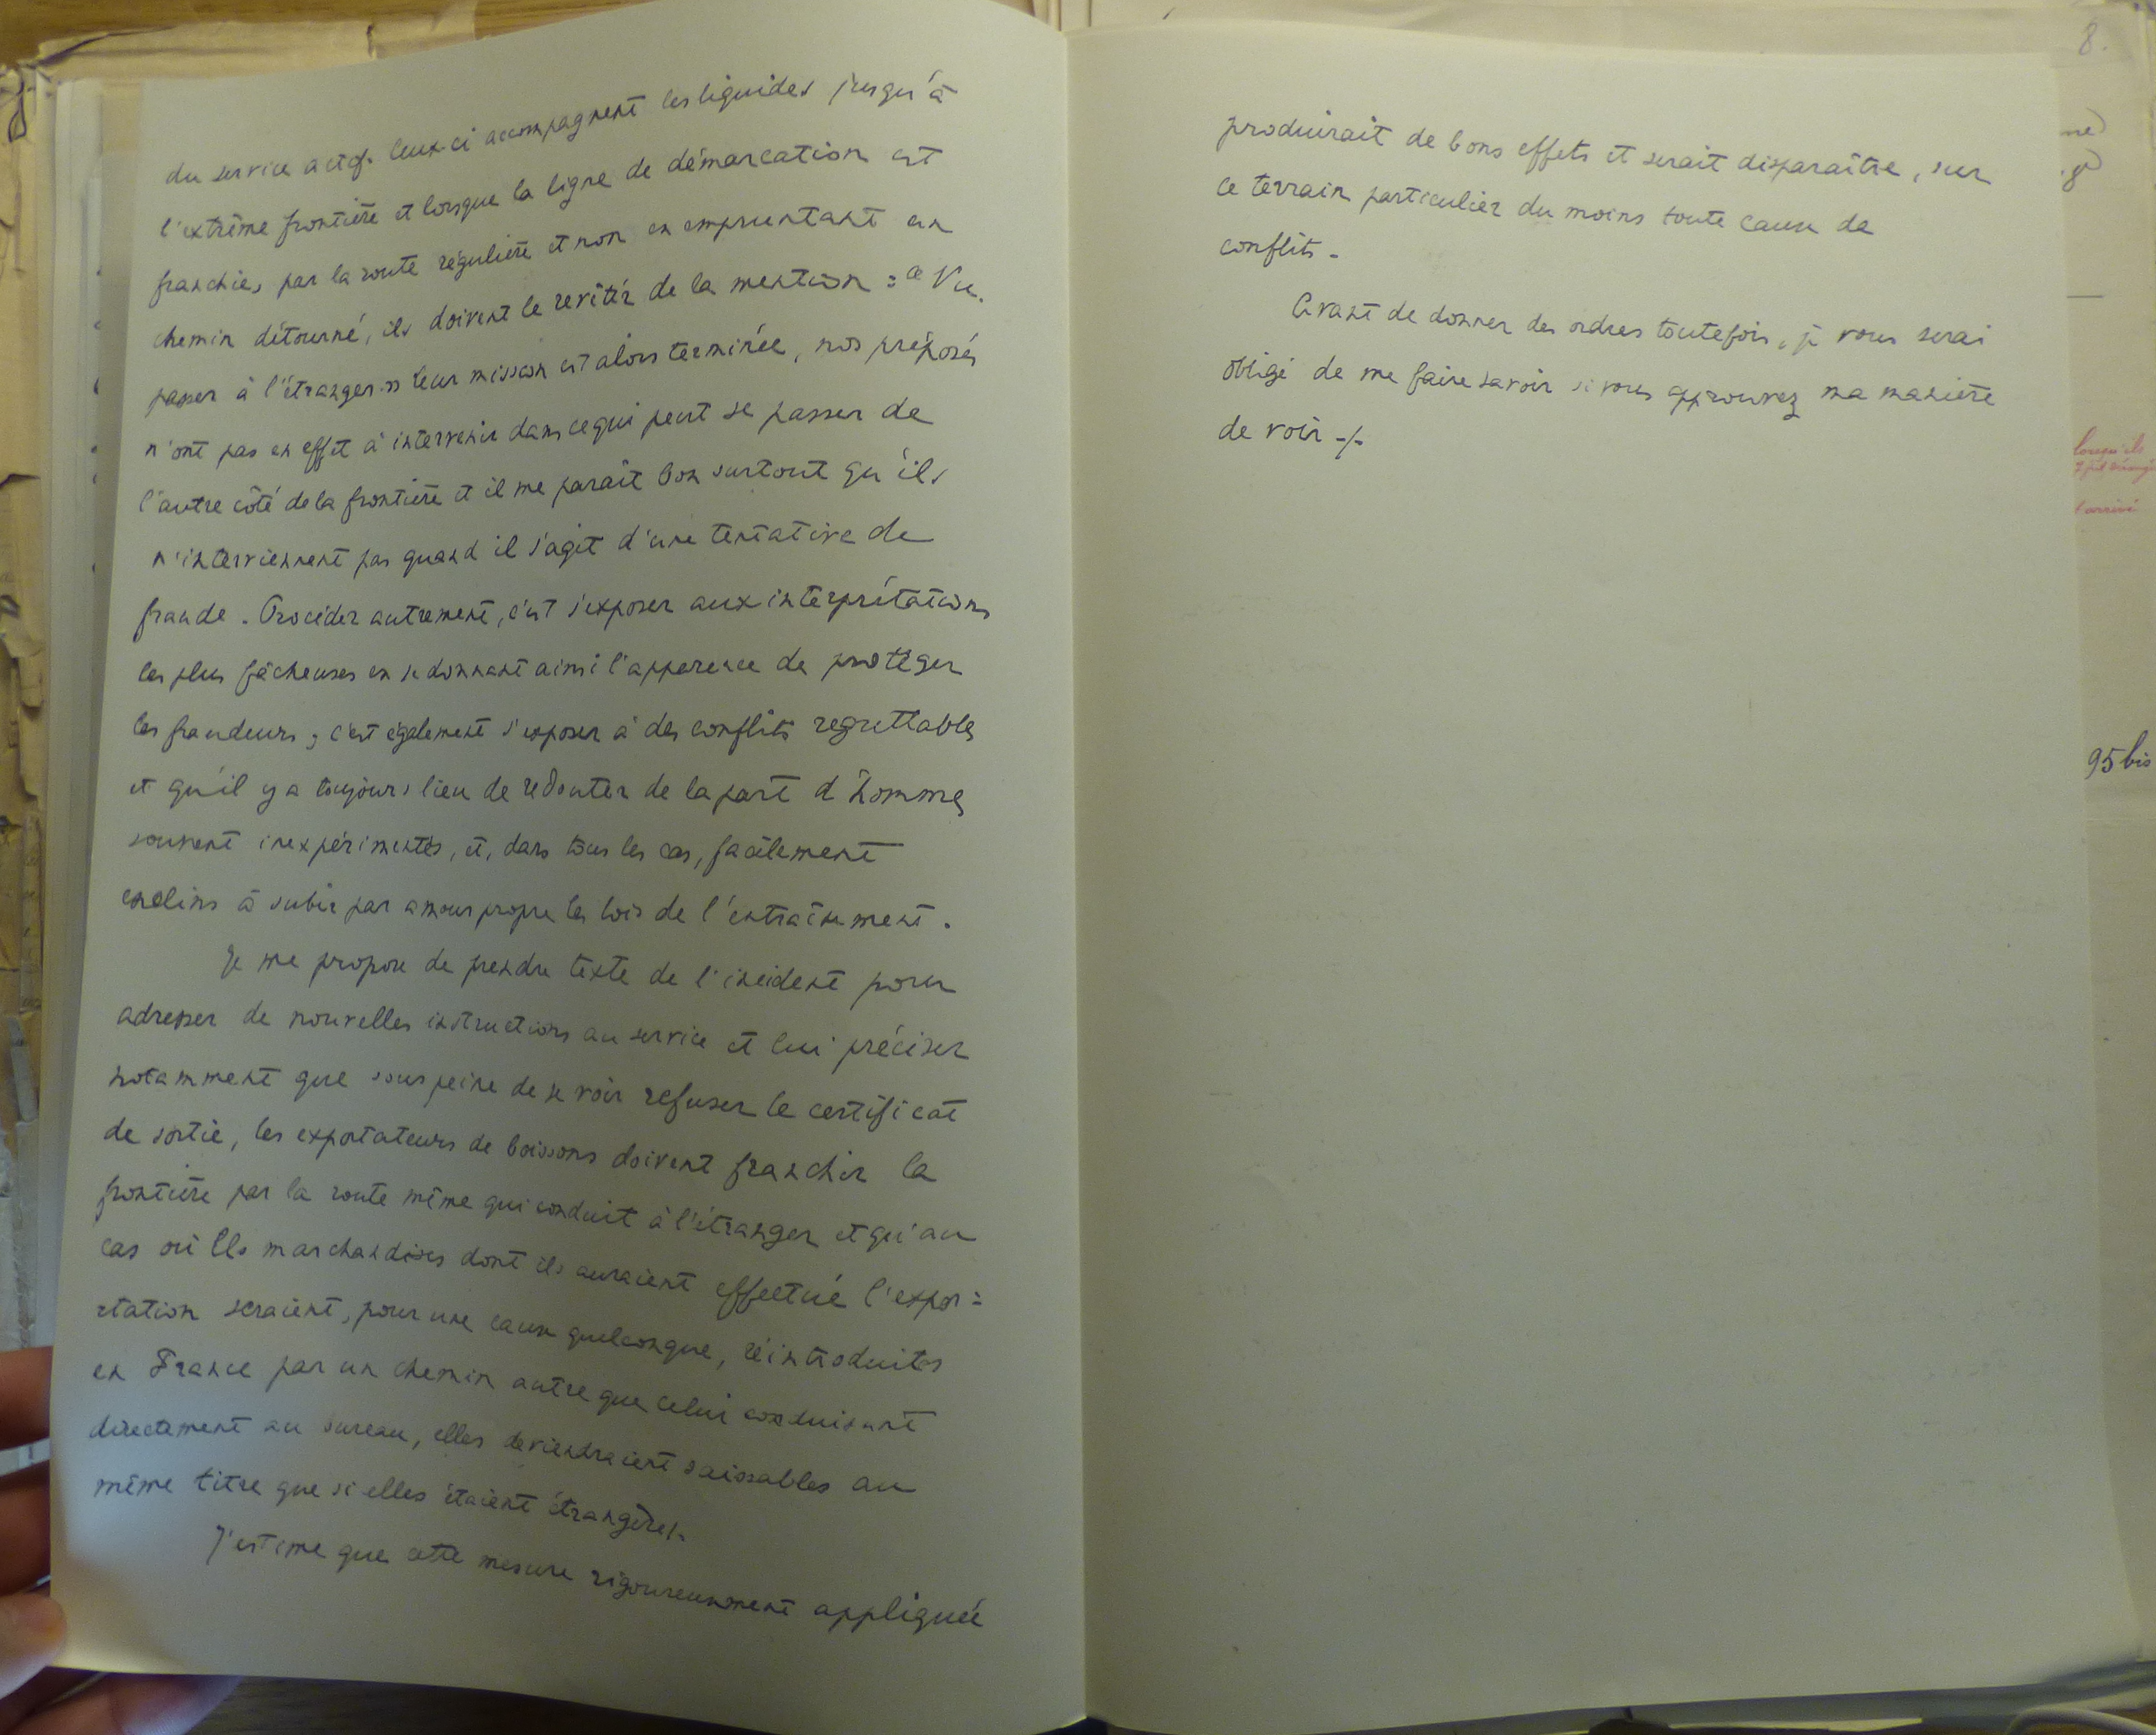 du service actif. Ceux-ci accompagnent les liquides jusqu'à
l'extrême frontière et lorsque la ligne de démarcation est
franchie, par la route régulière et non en empruntant un
chemin détourné, ils doivent le revêtir de la mention : « Vu
passer à l'étranger » leur mission est alors terminée, nos préposés
n'ont pas en effet à intervenir dans ce qui peut se passer de
l'autre côté de la frontière et il me paraît bon surtout qu'ils
n'interviennent pas quand il s'agit d'une tentative de
fraude. Procéder autrement, c'est s'exposer aux interprétations
les plus fâcheuses en se donnant ainsi l'apparence de protéger
les fraudeurs ; c'est également s'exposer à des conflits regrettables
et qu'il y a toujours lieu de redouter de la part d'hommes
souvent inexpérimentés, et, dans tous les cas, facilement
enclins à subir par amour propre les lois de l'entraînement.
Je me propose de prendre texte de l'incident pour
adresser de nouvelles instructions au service et lui préciser
notamment que sous peine de se voir refuser le certificat
de sortie, les exportateurs de boissons doivent franchir la
frontière par la route même qui conduit à l'étranger et qu'au
cas où les marchandises dont ils auraient effectué l'expor=
tation seraient, pour une cause quelconque, réintroduites
en France par un chemin autre que celui conduisant
directement au bureau, elles deviendraient saisissables au
même titre que si elles étaient étrangères.
J'estime que cette mesure rigoureusement appliquée
8.
produirait de bons effets et serait disparaître, sur
ce terrain particulier du moins toute cause de
conflits.
Avant de donner des ordres toutefois, je vous serai
obligé de me faire savoir si vous approuvez ma manière
de voir -/-
lorsqu'ils
l'arrivé
95 bis